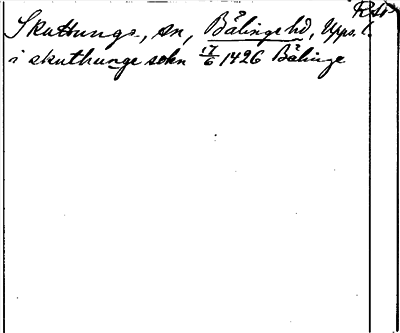 Skuttunge, sn, Bälinge hd, Upps. l.
i skuthunge sokn 17/6 1426 Bälinge